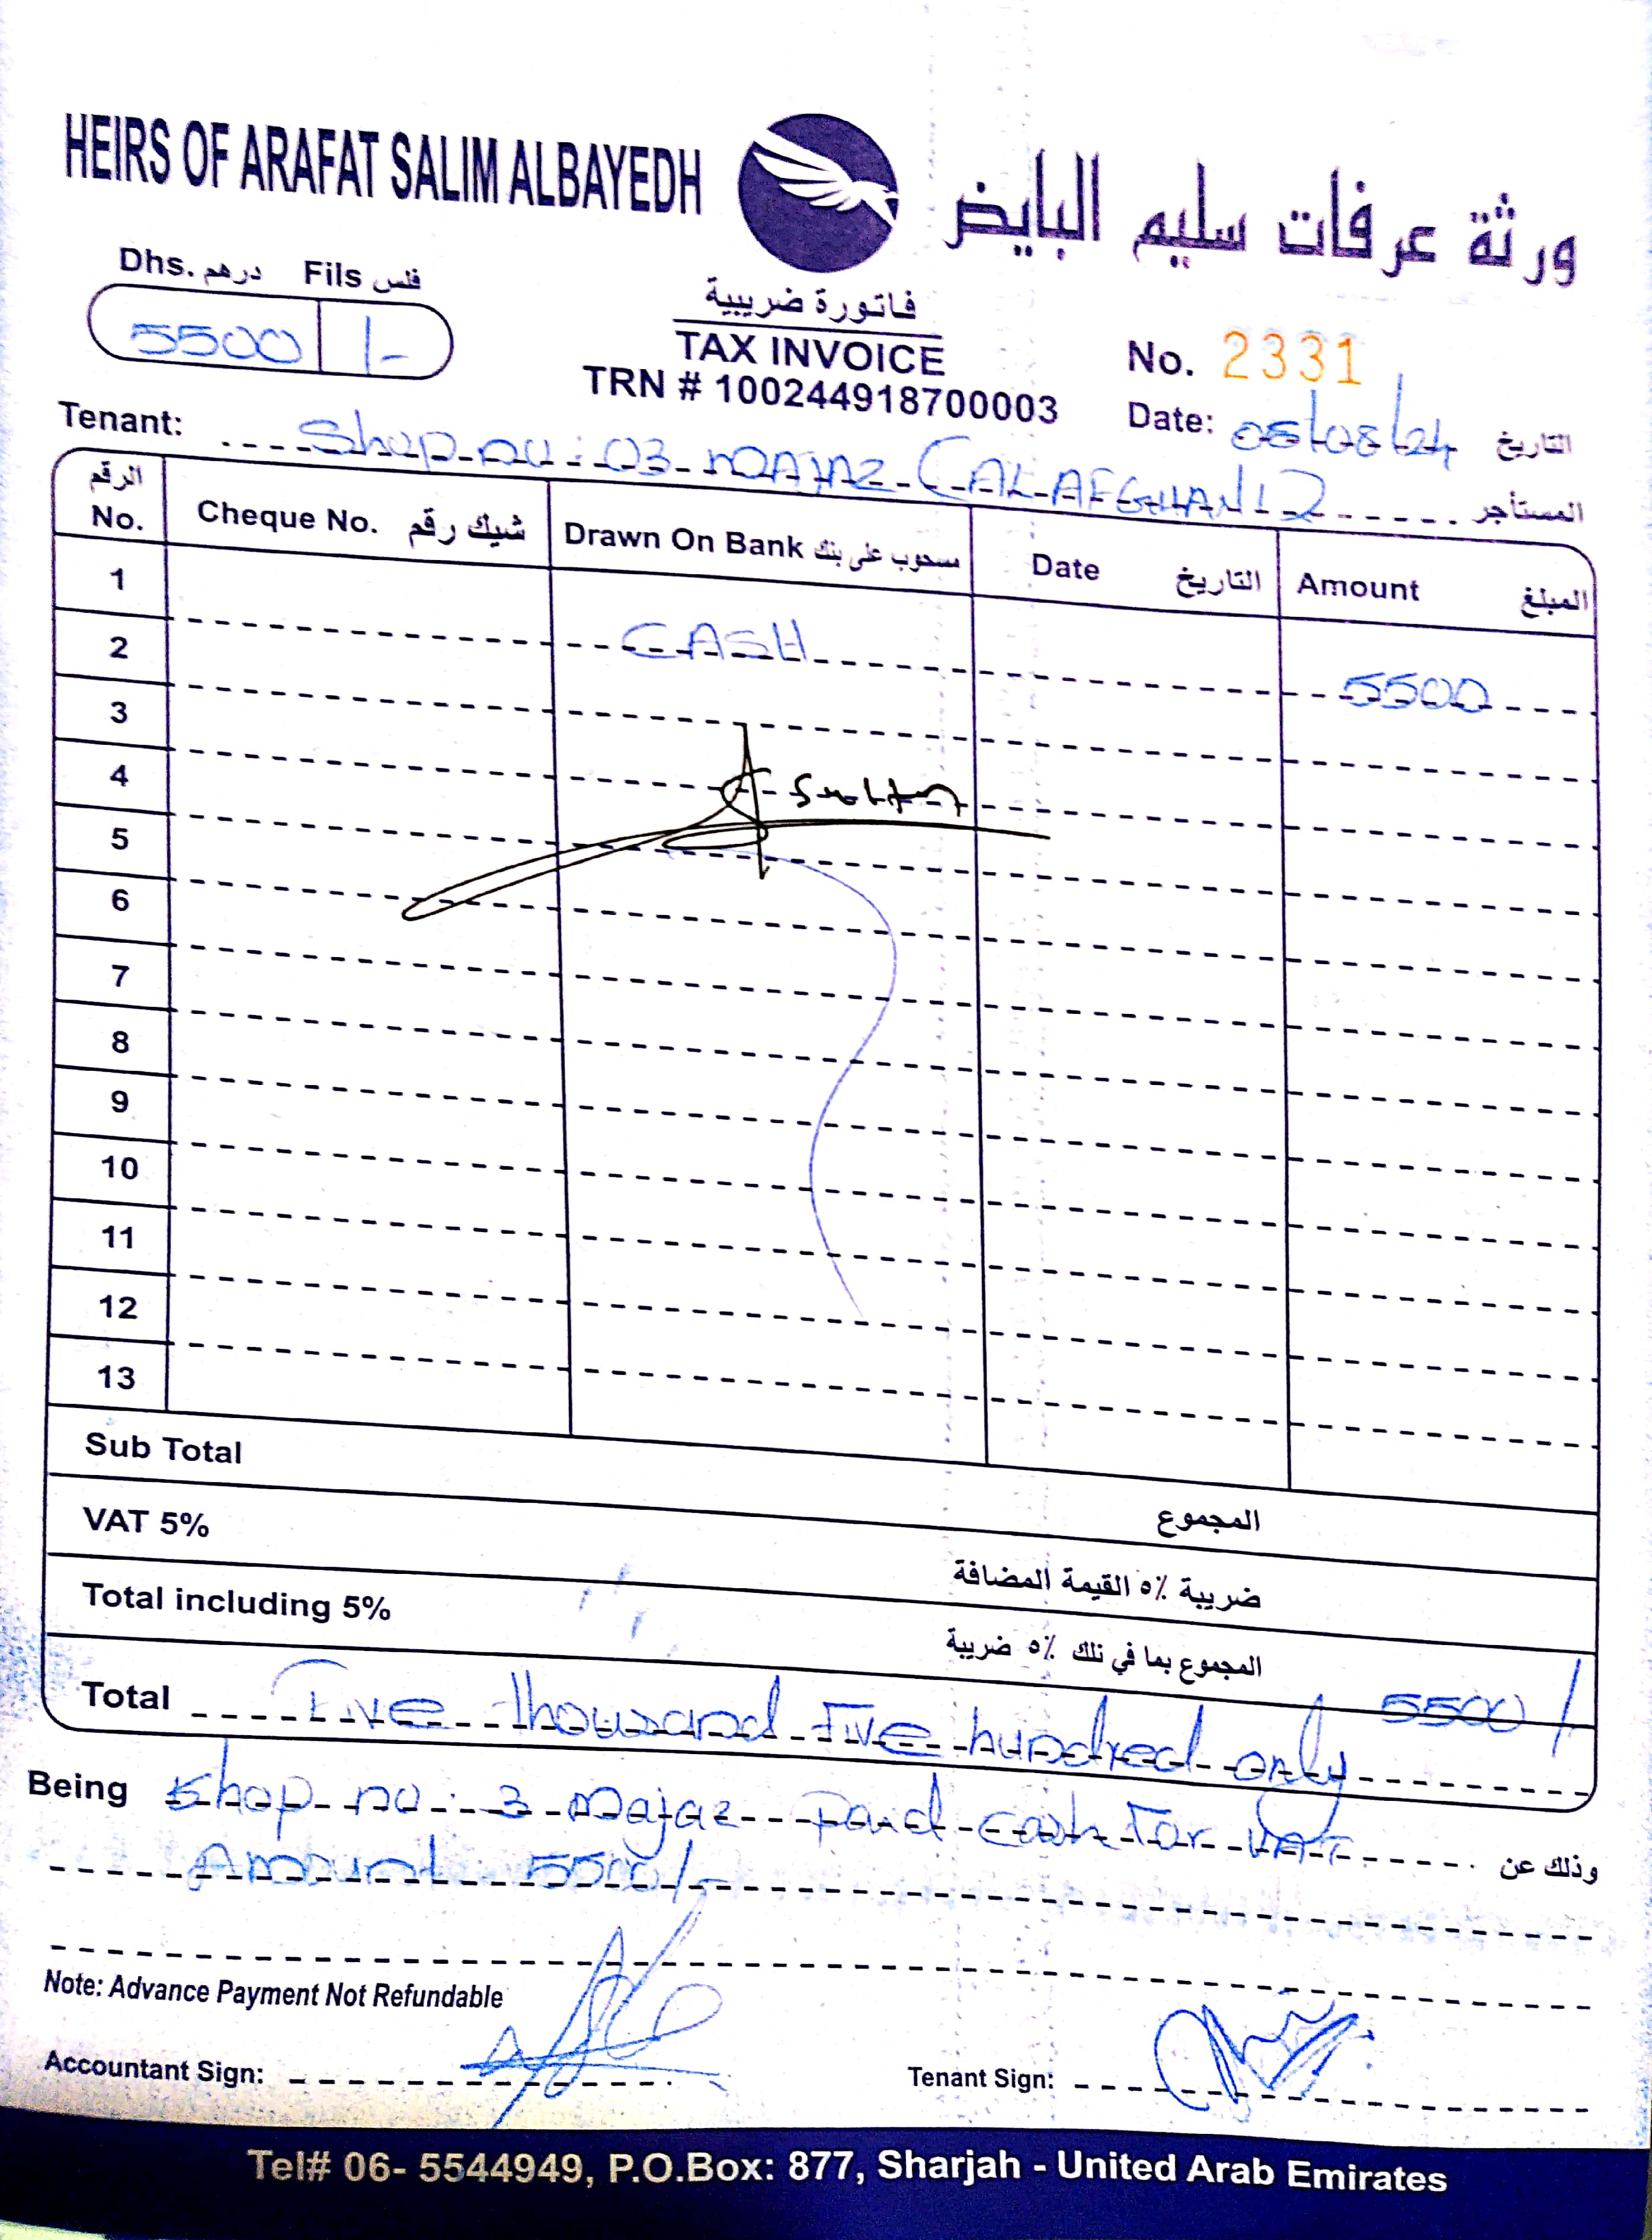 HEIRS OF ARAFAT SALIM ALBAYEDH
ورثة عرفات سليم البايض
Dhs. درهم Fils فلس
5500 /-
فاتورة ضريبية
TAX INVOICE
TRN # 100244918700003
No. 2331
Date: 05/08/24 التاريخ
Tenant: Shop no : 03 majaz (AL AFGHANI) المستأجر
الرقم No. Cheque No. شيك رقم Drawn On Bank مسحوب على بنك Date التاريخ Amount المبلغ
1
2 CASH 5500
3
4 Sultan
5
6
7
8
9
10
11
12
13
Sub Total المجموع
VAT 5% ضريبة ٥٪ القيمة المضافة
Total including 5% المجموع بما في ذلك ٥٪ ضريبة 5500/
Total Five thousand Five hundred only
Being Shop no : 3 majaz paid cash for VAT وذلك عن
Amount 5500/-
Note: Advance Payment Not Refundable
Accountant Sign: Tenant Sign:
Tel# 06- 5544949, P.O.Box: 877, Sharjah - United Arab Emirates